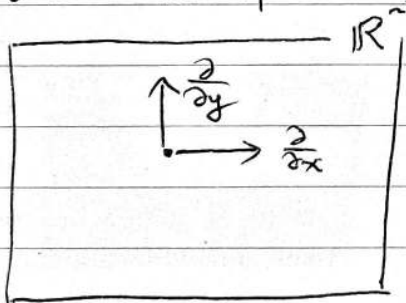 ℝ²
∂/∂y
∂/∂x